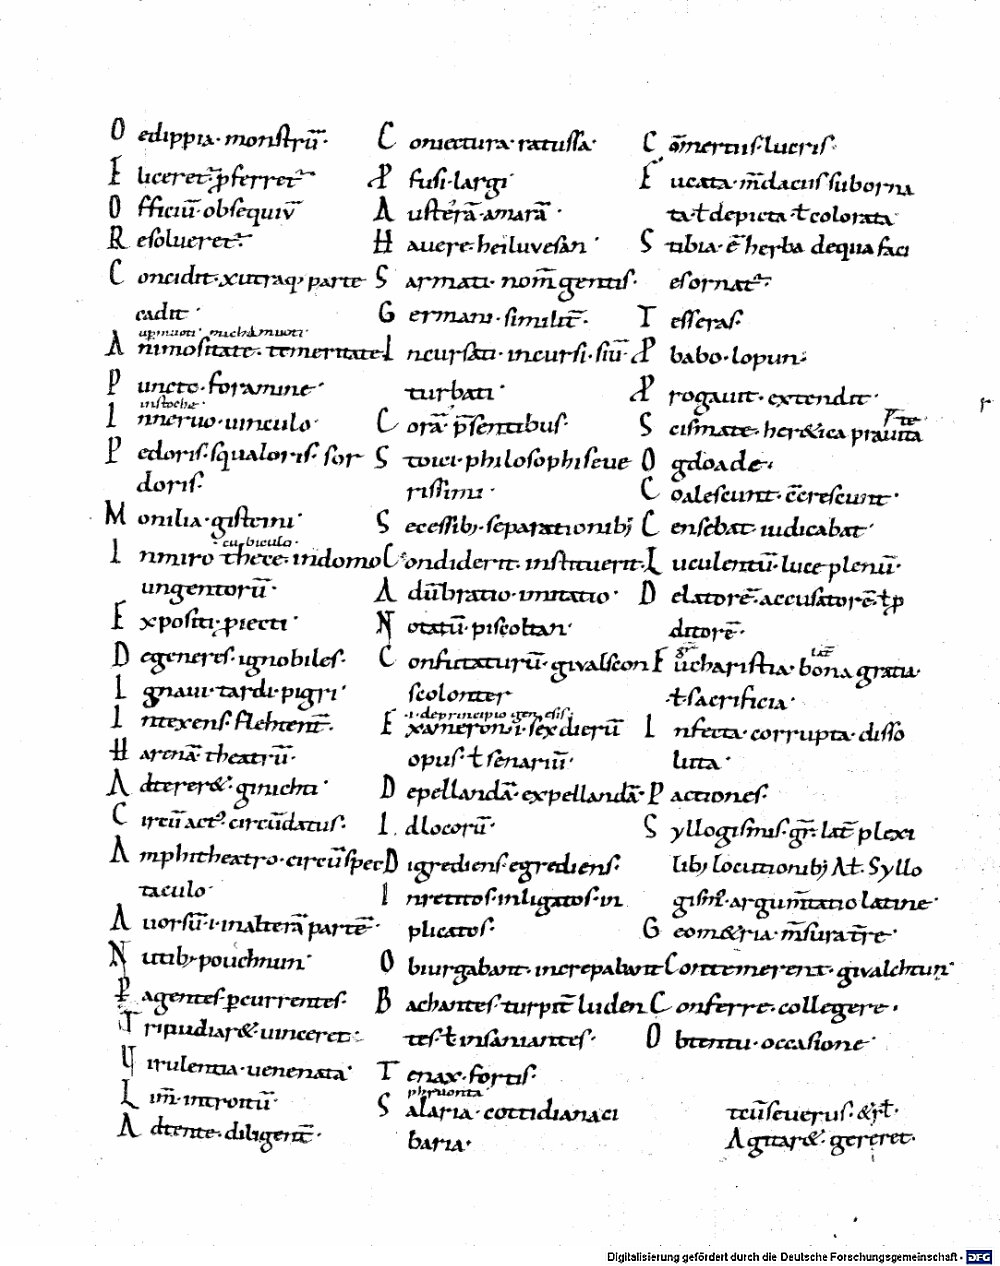 O edippia· monstrū·
E liceret̃· p̄ferret̃
O fficiū· obsequiv̄
R esolueret̃·
C oncidit· xutraq; parte
cadit·
A nimositate· temeritate
P uncto· foramine·
instoche·
I nneruo· uinculo·
P edoris· squaloris· sor
doris·
M onilia· gisteini·
cubiculo·
I nmiro thece· indomo
ungentorū·
E xpositi· piecti·
D egeneres· ignobiles·
I gnaui· tardi· pigri·
I ntexens· flehtent̄·
H arenā· theatrū·
A dterer&· ginichti·
C ircūact;· circūdatus·
A mphitheatro· circūspec
taculo·
A uorsū· i· inalterā partē·
N utib; pouchnun·
P agentes· pcurrentes·
T ripudiar&· uinceret·
U irulentia· uenenata·
L im̄· introitū·
A dtente· diligent̄·
C oniectura· ratussa·
P fusi· largi·
A usterā· amarā·
H auere· heiluuesan·
S armati· nom̄ gentis·
G ermani· similit̄·
I ncursati· incursi· siū
turbati·
C orā· p̄sentibus·
S toici· philosophi seue
rissimi·
S ecessib; separationib;
C ondiderit· instituerit·
A dūbratio· imitatio·
N otatū· piscoltan·
C onfutaturū· givalscon
scolonter
·i· deprincipio genesis·
E xameron· i· sex dierū
opus· ł senariū·
D epellandā· expellandā·
I dlocorū·
D igrediens· egrediens·
I nretitos· inligatos· in
plicatos·
O biurgabant· increpabant
B achantes· turpit̄ luden
tes· ł insaniantes·
T enax· fortis·
phruonta
S alaria· cottidianaci
baria·
C ōmertiis· lucris·
F ucata· m̄dacus suborna
ta· ł depicta· ł colorata
S tibia· ē herba dequa faci
es ornat̃·
T esseras·
P babo· lopun·
P rogauit· extendit·
S cismate· her&ica prauita
O gdoade·
C oalescunt· c̄crescunt·
C ensebat· iudicabat·
L uculentū· luce plenū·
D elatorē· accusatorē· ł p
ditorē·
E ucharistia· bona gratia·
ł sacrificia·
I nfecta· corrupta· disso
luta·
P actiones·
S yllogismis· gr̄· lat̄ plexi
lib; locutionib; Ał Syllo
gism;· argum̄tatio latine·
G eom&ria· m̄sura t̄re·
C ontemerent· givalchtun·
C onferre· collegere·
O btentu· occasione·
tcū seuerus· &rł·
Agitar&· gereret·
Digitalisierung gefördert durch die Deutsche Forschungsgemeinschaft - DFG